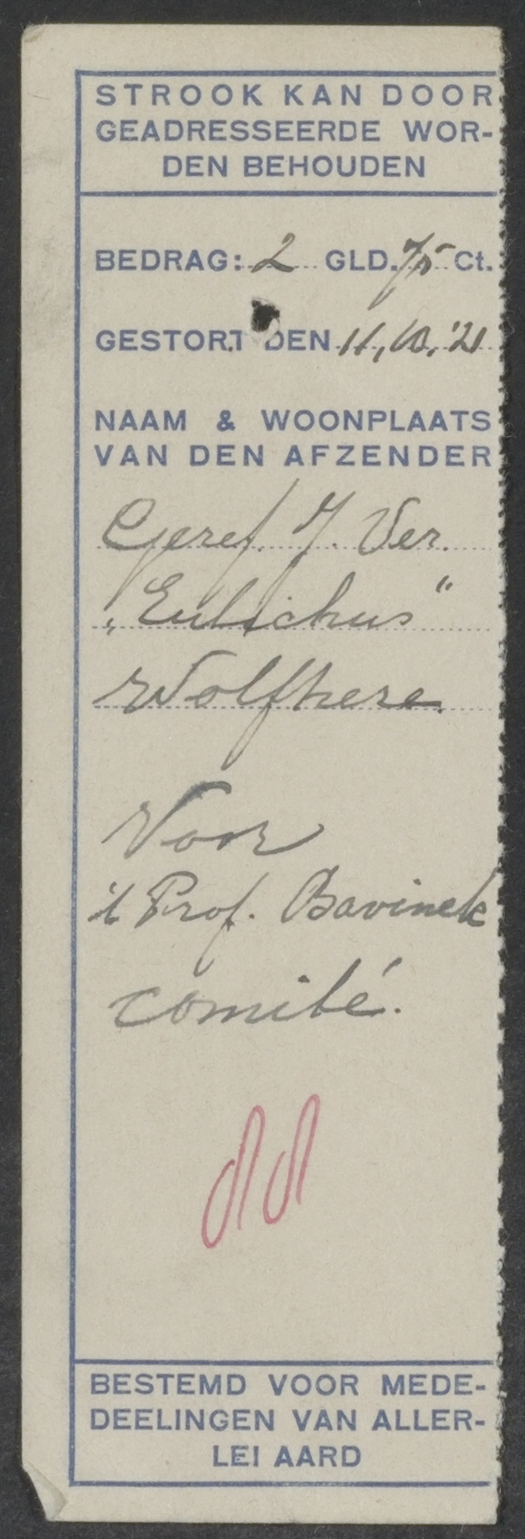 STROOK KAN DOOR
GEADRESSEERDE WOR-
DEN BEHOUDEN
BEDRAG: 2 GLD. 75 Ct.
GESTORT DEN 11,10,'21
NAAM & WOONPLAATS
VAN DEN AFZENDER
Geref. J. Ver.
"Eutichus"
Wolfheze
Voor
't Prof. Bavinck
comité.
BESTEMD VOOR MEDE-
DEELINGEN VAN ALLER-
LEI AARD